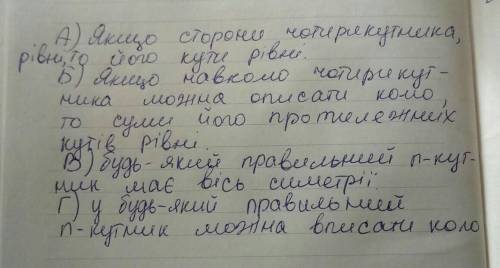 А) Якщо сторони чотирикутника,
рівні, то його кути рівні.
Б) Якщо навколо чотирикут-
ника можна описати коло,
то суми його протилежних
кутів рівні.
В) будь-який правильний п-кут-
ник має вісь симетрії.
Г) у будь-який правильний
п-кутник можна вписати коло